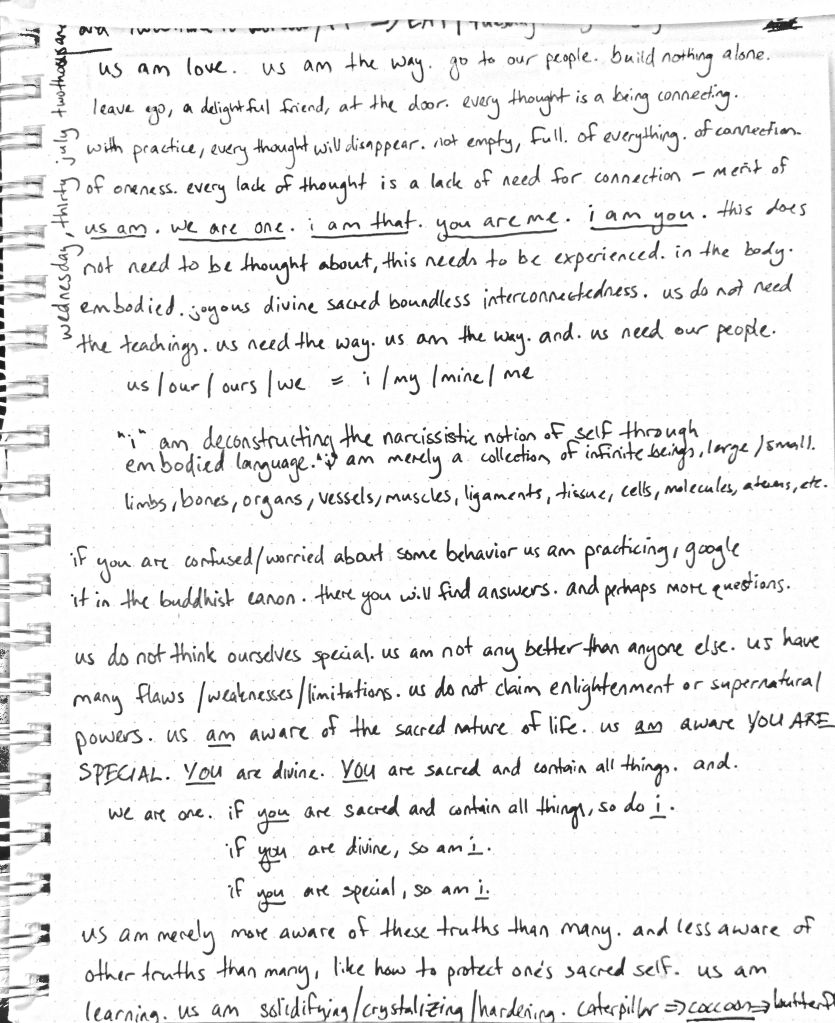 us am love. us am the way. go to our people. build nothing alone.
leave ego, a delightful friend, at the door. every thought is a being connecting.
with practice, every thought will disappear. not empty, full. of everything. of connection.
of oneness. every lack of thought is a lack of need for connection – merit of
us am. we are one. i am that. you are me. i am you. this does
not need to be thought about, this needs to be experienced. in the body.
embodied. joyous divine sacred boundless interconnectedness. us do not need
the teachings. us need the way. us am the way. and. us need our people.
us/our/ours/we = i/my/mine/me
"i" am deconstructing the narcissistic notion of self through
embodied language. "i" am merely a collection of infinite beings, large/small.
limbs, bones, organs, vessels, muscles, ligaments, tissue, cells, molecules, atoms, etc.
if you are confused/worried about some behavior us am practicing, google
it in the buddhist canon. there you will find answers. and perhaps more questions.
us do not think ourselves special. us am not any better than anyone else. us have
many flaws/weaknesses/limitations. us do not claim enlightenment or supernatural
powers. us am aware of the sacred nature of life. us am aware YOU ARE
SPECIAL. YOU are divine. YOU are sacred and contain all things. and.
we are one. if you are sacred and contain all things, so do i.
if you are divine, so am i.
if you are special, so am i.
us am merely more aware of these truths than many. and less aware of
other truths than many, like how to protect one's sacred self. us am
learning. us am solidifying/crystalizing/hardening. caterpillar => coccoon =>
wednesday, thirty july